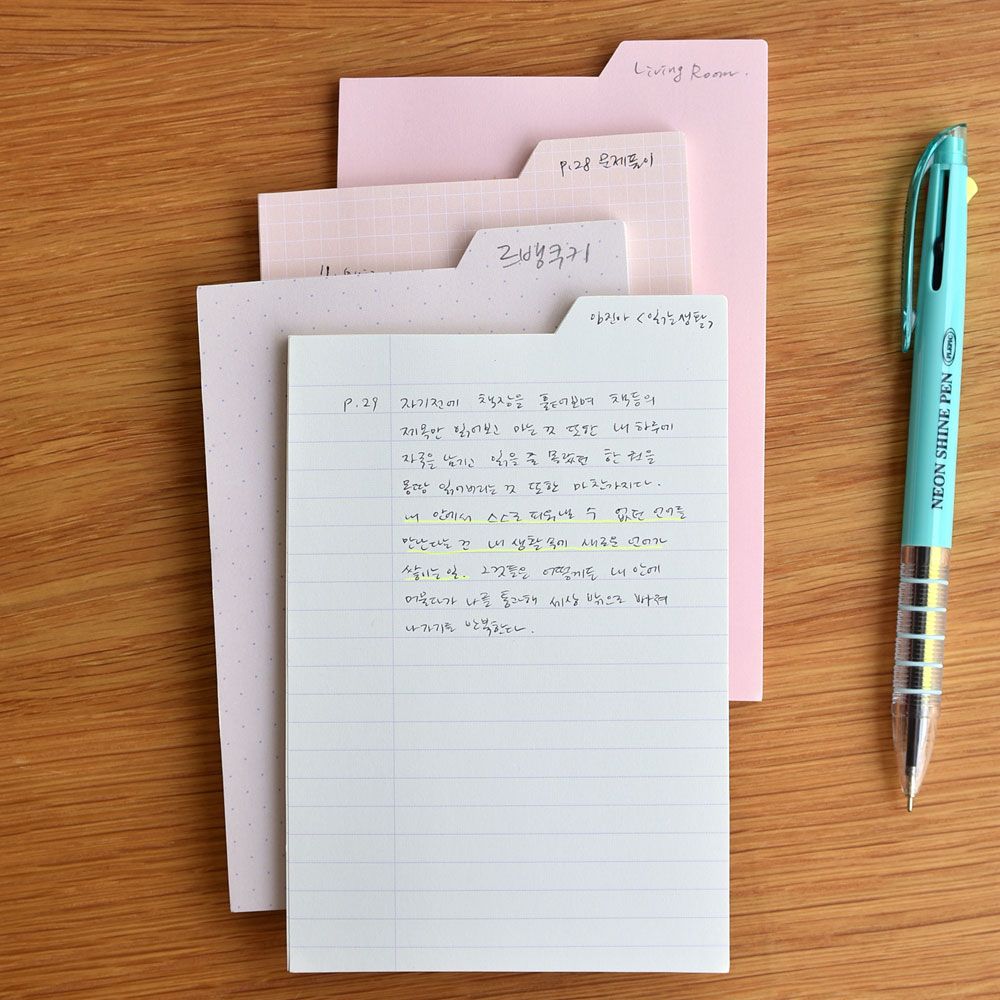 Living Room.
p.28 문제풀이
르뱅쿠키
임진아 <읽는생활>
p.29 자기전에 책장을 훑어보며 책등의
제목만 읽어보고 마는 것 또한 내 하루에
자국을 남기고 읽을 줄 몰랐던 한 권을
몽땅 읽어버리는 것 또한 마찬가지다.
내 안에서 스스로 피워낼 수 없던 언어를
만난다는 건 내 생활 속에 새로운 언어가
쌓이는 일. 그것들은 어떻게든 내 안에
머물다가 나를 통과해 세상 밖으로 빠져
나가기를 반복한다.
NEON SHINE PEN
PLEPIC